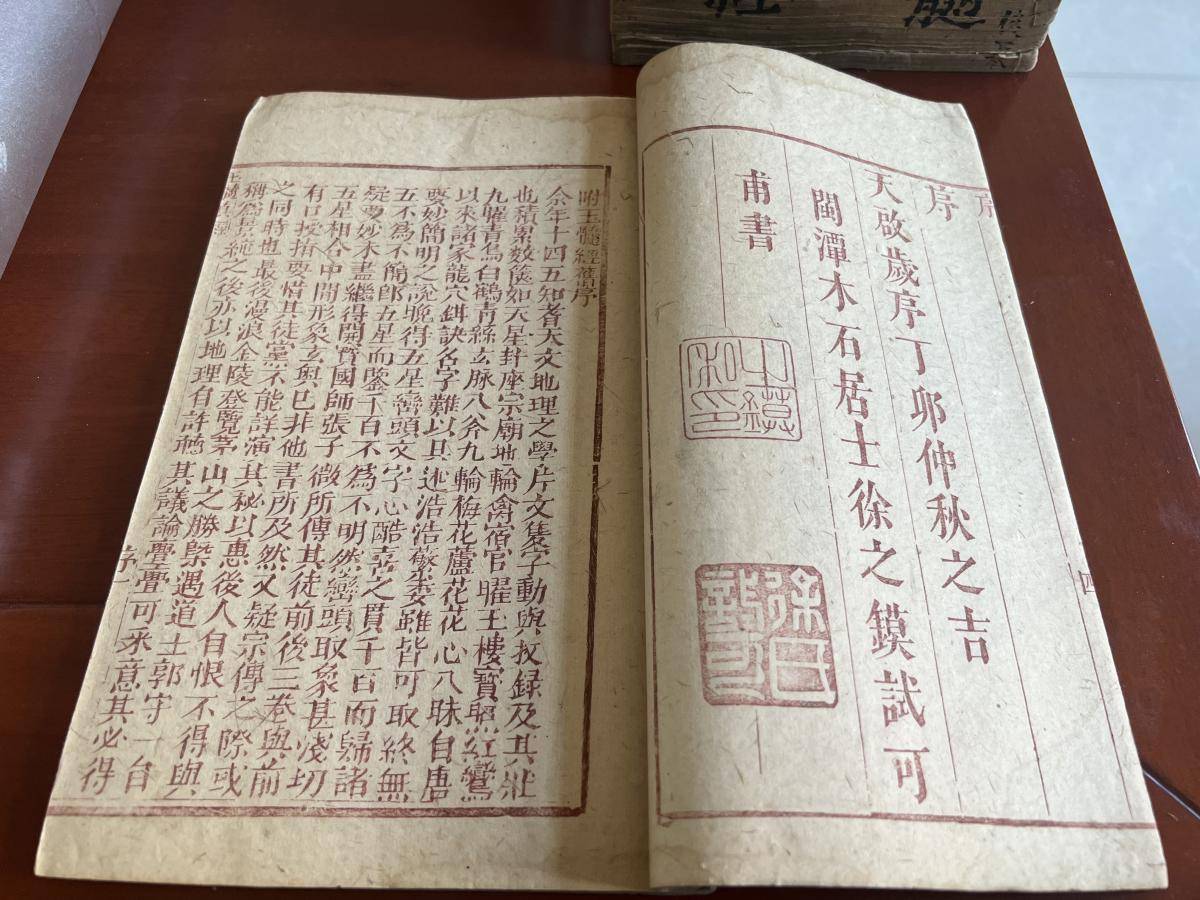 序
天啟歲序丁卯仲秋之吉
閩潭木石居士徐之鏌試可
甫書
之鏌
私印
徐氏
四
附玉髓經舊序
余年十四五知耆天文地理之學片文隻字動與抆録及其壯
也積累數篋如天星卦座宗廟地輪禽宿官曜玉樓寶照紅鸞
九曜青烏白鶴青絲玄脉八分九輪梅花蘆花花心八昧自唐
以來諸家龍穴鉗訣名字難以具述浩浩蘩委雖皆可取終無
要妙簡明之說晚得五星巒頭文字心酷喜之貫千百而歸諸
五不為不簡即五星而鑒千百不為不明然巒頭取象甚淺切
疑要妙未盡繼得開寳國師張子微所傳其徒前後三卷與前
五星相合中間形象玄奥已非他書所及然又疑宗傳之際或
有口授指要惜其徒黨不能詳演其秘以惠後人自恨不得與
之同時也最後漫浪金陵登覽茅山之勝槩遇道士郭守一自
稱
之後亦以地理自許聽其議論亹亹可釆意其必得
序一
髓